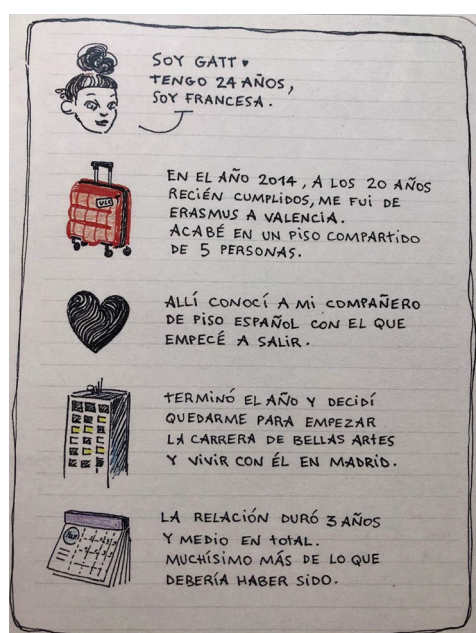 SOY GATT♥
TENGO 24 AÑOS,
SOY FRANCESA.
VLC
EN EL AÑO 2014, A LOS 20 AÑOS
RECIÉN CUMPLIDOS, ME FUI DE
ERASMUS A VALENCIA.
ACABÉ EN UN PISO COMPARTIDO
DE 5 PERSONAS.
ALLÍ CONOCÍ A MI COMPAÑERO
DE PISO ESPAÑOL CON EL QUE
EMPECÉ A SALIR.
TERMINÓ EL AÑO Y DECIDÍ
QUEDARME PARA EMPEZAR
LA CARRERA DE BELLAS ARTES
Y VIVIR CON ÉL EN MADRID.
LA RELACIÓN DURÓ 3 AÑOS
Y MEDIO EN TOTAL.
MUCHÍSIMO MÁS DE LO QUE
DEBERÍA HABER SIDO.